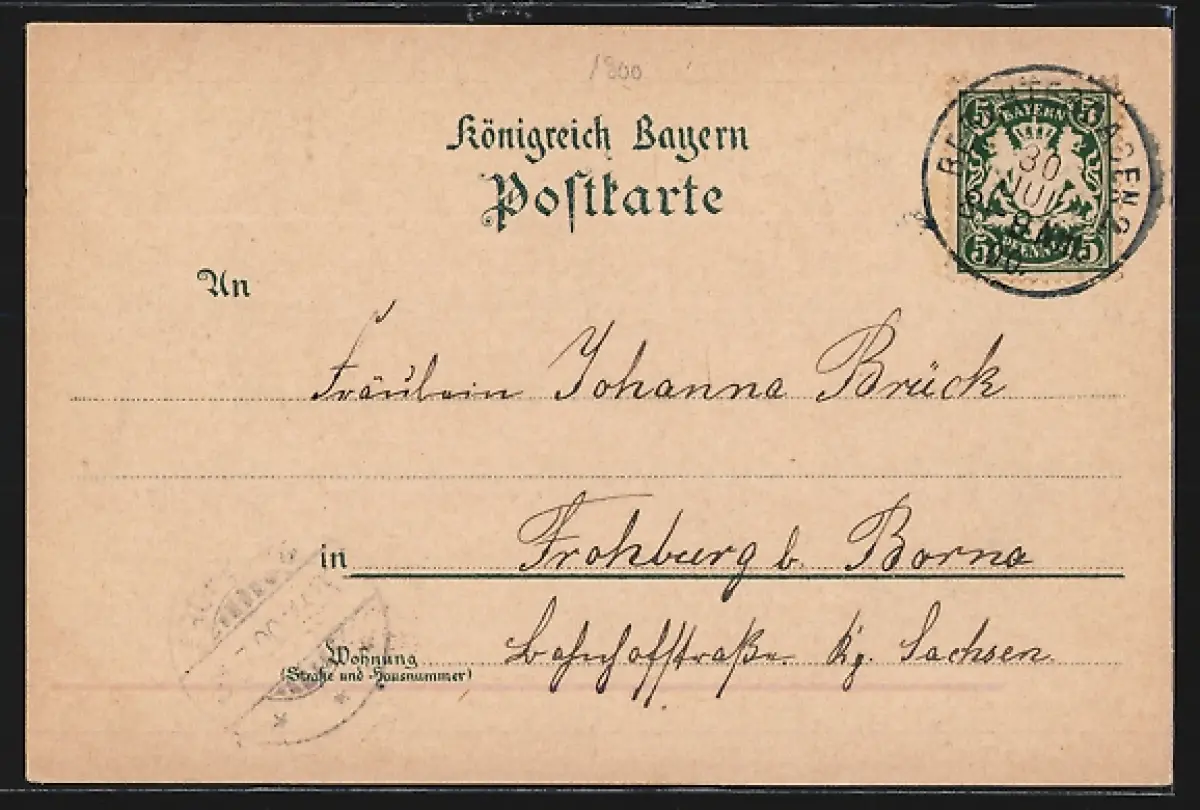 1900
Königreich Bayern
Postkarte
5 BAYERN 5
5 PFENNIG 5
BERCHTESGADEN 2
30
JUL
00.
An
Fräulein Johanna Brück
in Frohburg b. Borna
Wohnung
(Straße und Hausnummer)
Bahnhofstraße. Kg. Sachsen.